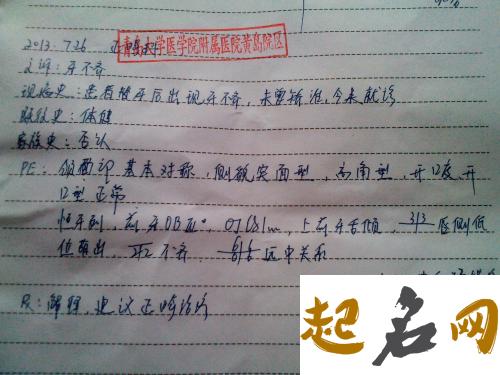 2013.7.26 正畸科
青岛大学医学院附属医院黄岛院区
主诉：牙不齐
现病史：患者替牙后出现牙不齐，未曾矫治，今来就诊
既往史：体健
家族史：否认
PE：颌面部基本对称，侧貌突面型，高角型，开口度、开
口型正常
恒牙列，前牙OB Ⅱ°，OJ 上前牙舌倾，3|3 唇侧低
位萌出，2+2 不齐，6|6 远中关系
R：解释，建议正畸治疗
起名网